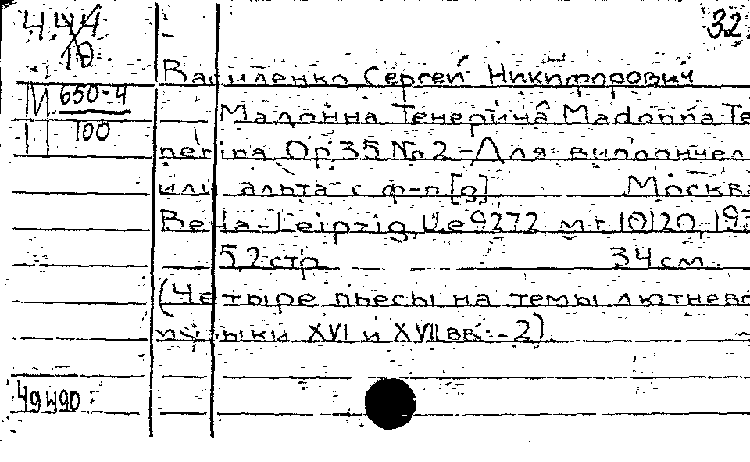 444 32
10
Василенко Сергей Никифорович
М 650-4
100
Мадонна Тенерина Madonna Te
nerina Op 35 № 2 - Для виолончел
или альта с ф-п [о] Москва
Leipzig U.e 9272 19
5,2 стр 34 см.
(Четыре пьесы на темы лютнево
музыки XVI и XVII вв. - 2).
49490